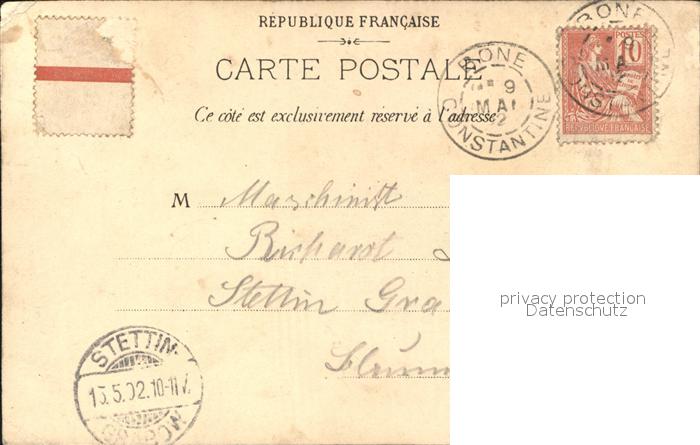 RÉPUBLIQUE FRANÇAISE
CARTE POSTALE
Ce côté est exclusivement réservé à l'adresse
BONE
9
MAI
02
CONSTANTINE
BONE
9
POSTES
10
REPUBLIQUE FRANÇAISE
M Maschinist
Richard
Stettin Gra
privacy protection
Datenschutz
STETTIN
15.5.02.10-11V.
GRABOW